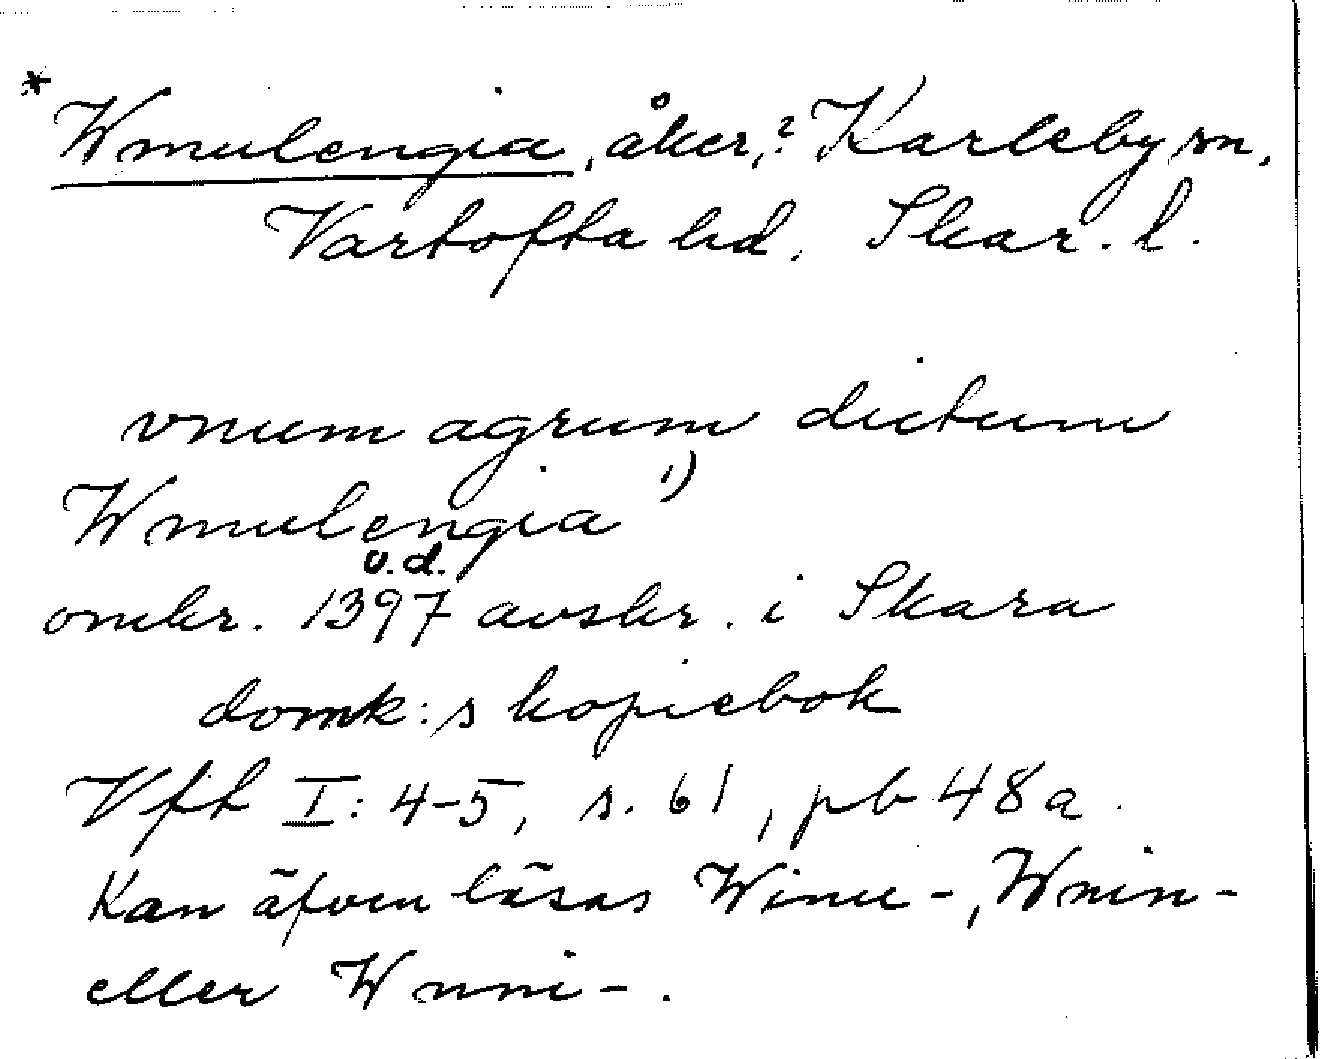 * Wmulengia, åker,? Karleby sn,
Vartofta hd, Skar. l.
vnum agrum dictum
Wmulengia 1)
o.d.
omkr. 1397 avskr. i Skara
domk:s kopiebok
Vfht I: 4-5, s. 61, pb 48a.
Kan äfven läsas Winu-, Wnin-
eller Wnni-.